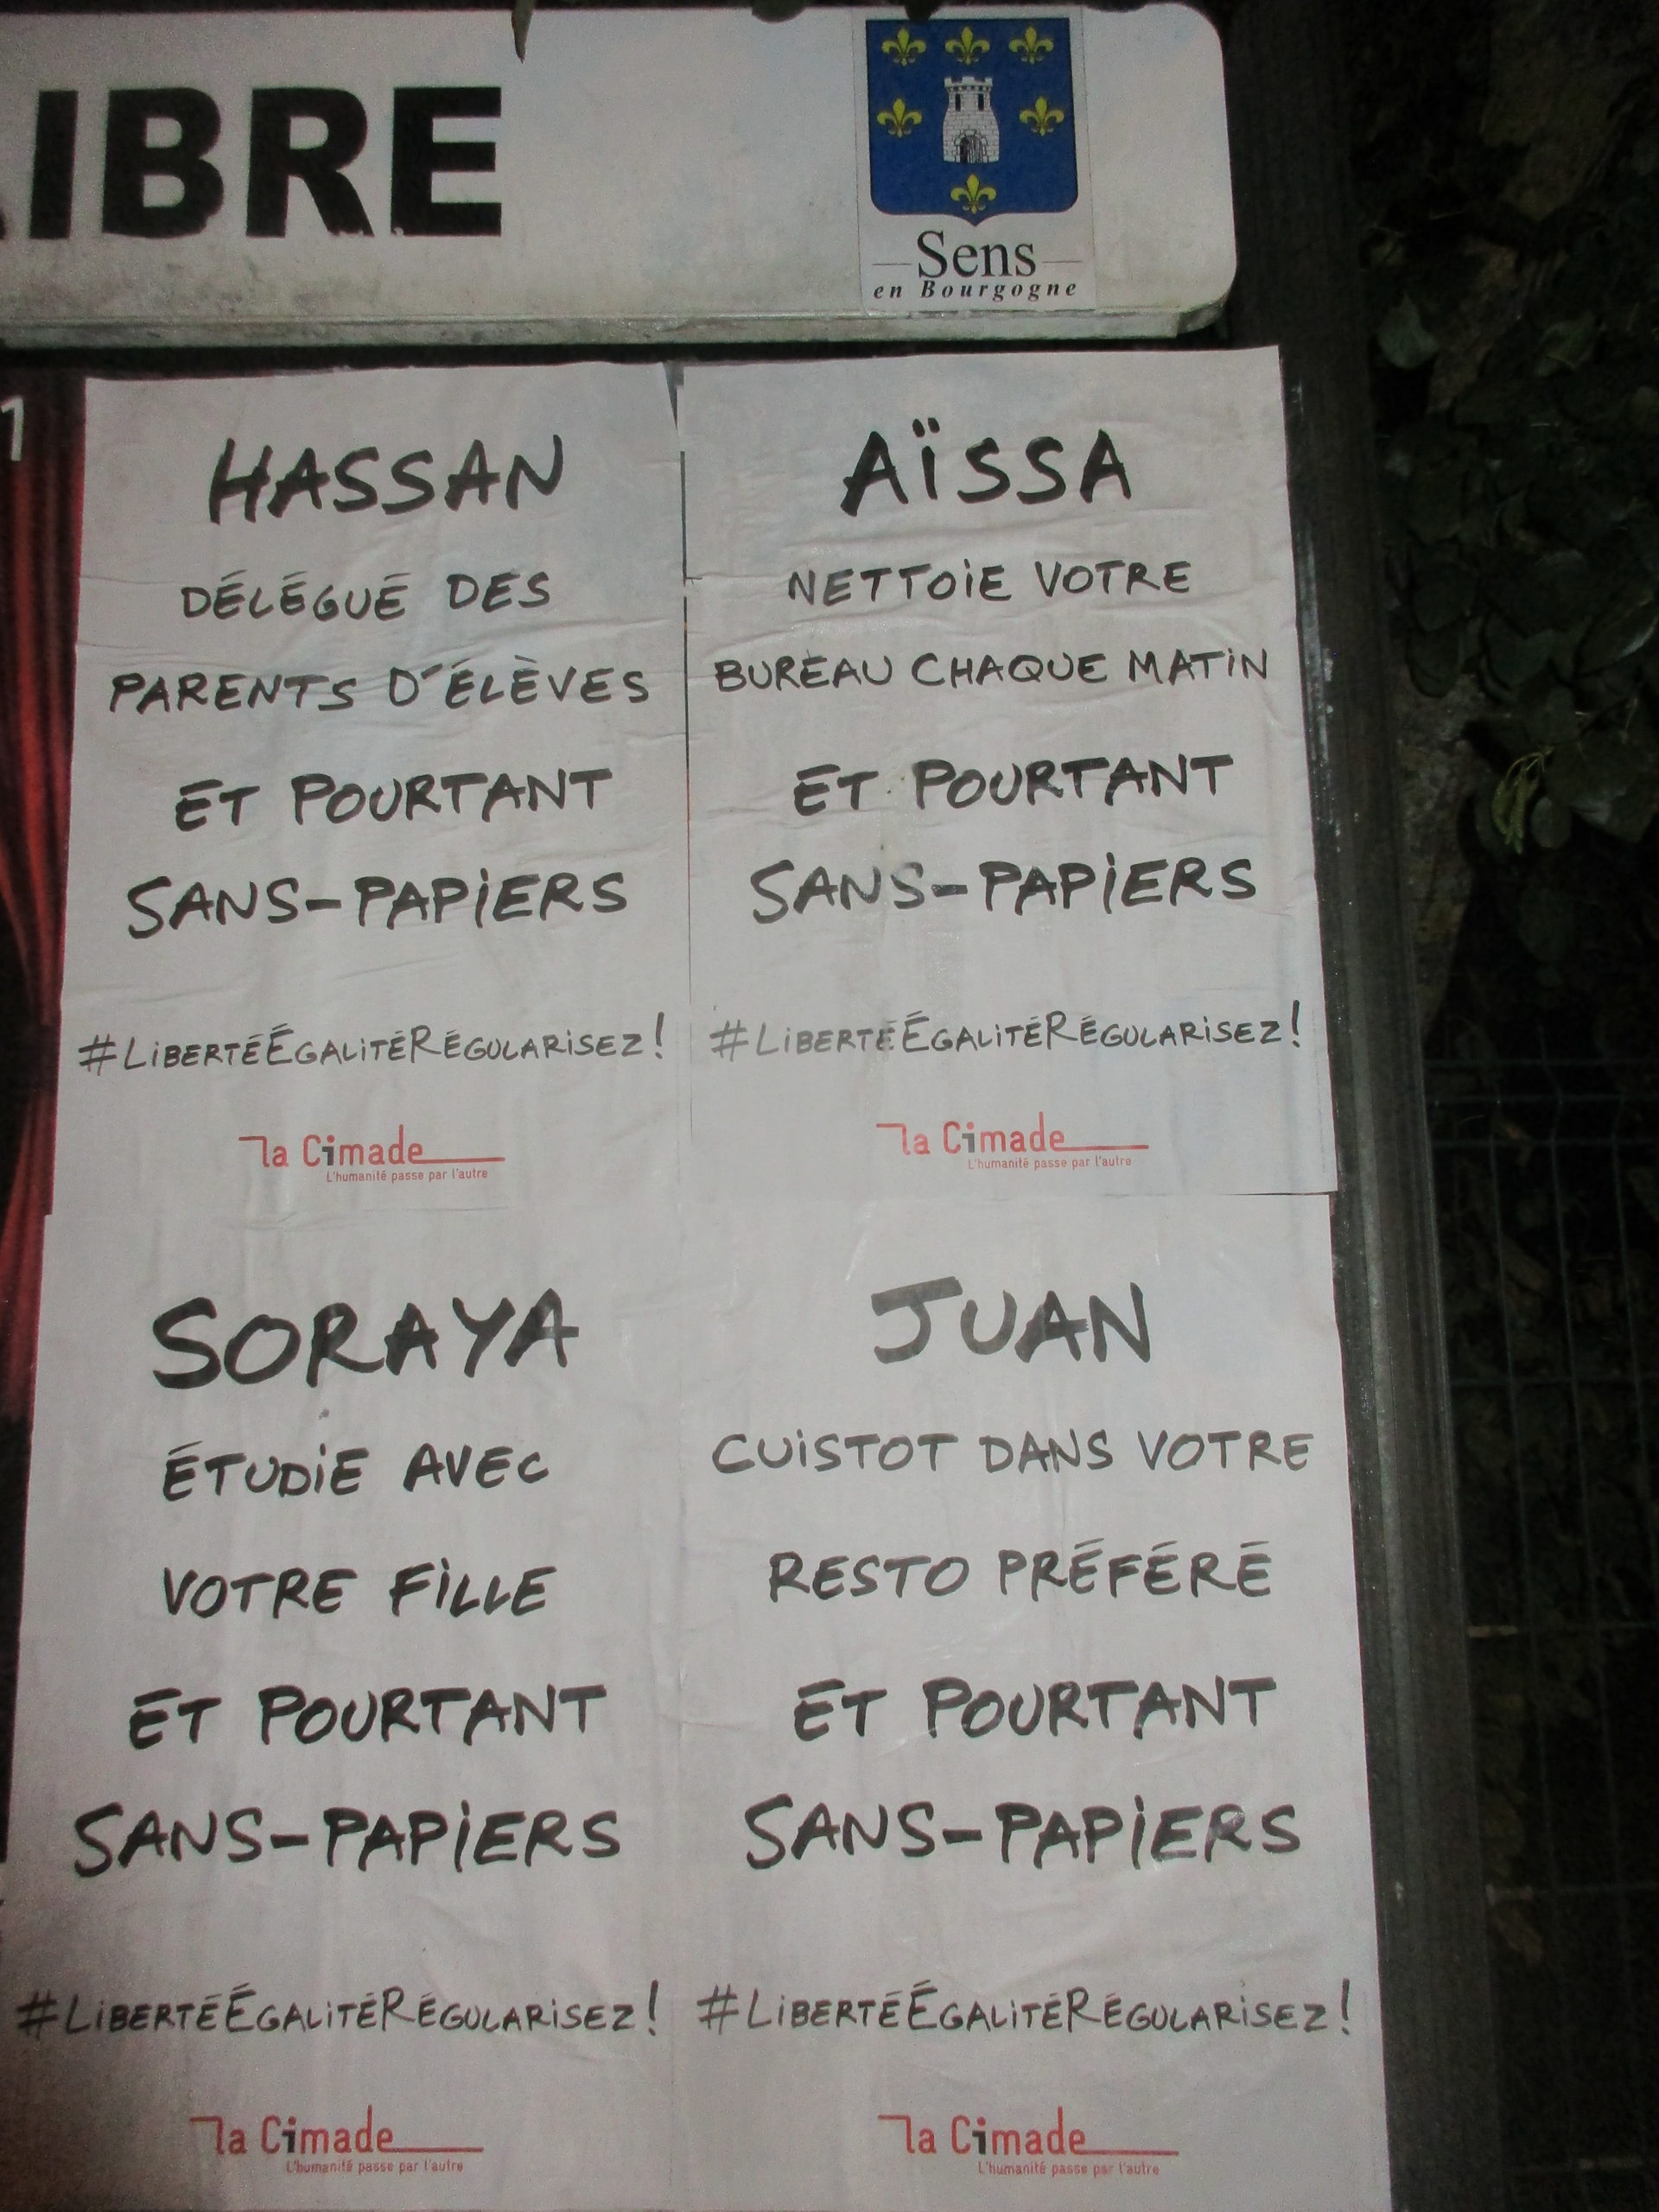 IBRE
Sens
en Bourgogne
1
HASSAN
DÉLÉGUÉ DES
PARENTS D'ÉLÈVES
ET POURTANT
SANS-PAPIERS
#LIBERTÉÉGALITÉRÉGULARISEZ!
la Cimade
L'humanité passe par l'autre
AÏSSA
NETTOIE VOTRE
BUREAU CHAQUE MATIN
ET POURTANT
SANS-PAPIERS
#LIBERTÉÉGALITÉRÉGULARISEZ!
la Cimade
L'humanité passe par l'autre
SORAYA
ÉTUDIE AVEC
VOTRE FILLE
ET POURTANT
SANS-PAPIERS
#LIBERTÉÉGALITÉRÉGULARISEZ!
la Cimade
L'humanité passe par l'autre
JUAN
CUISTOT DANS VOTRE
RESTO PRÉFÉRÉ
ET POURTANT
SANS-PAPIERS
#LIBERTÉÉGALITÉRÉGULARISEZ!
la Cimade
L'humanité passe par l'autre